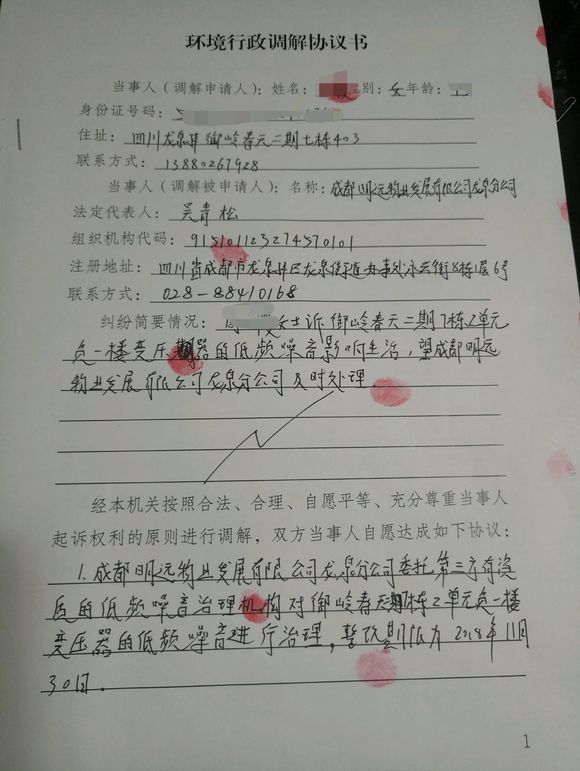 环境行政调解协议书
当事人（调解申请人）：姓名： 别：女年龄：
身份证号码：
住址：四川龙泉驿御岭春天二期七栋403
联系方式：13880267928
当事人（调解被申请人）：名称：成都明远物业发展有限公司龙泉分公司
法定代表人：吴青松
组织机构代码：915101123274570101
注册地址：四川省成都市龙泉驿区龙泉街道办事处 街8栋1层6号
联系方式：028-88410168
纠纷简要情况： 女士诉御岭春天二期7栋2单元
负一楼变压器的低频噪音影响生活，望成都明远
物业发展有限公司龙泉分公司及时处理.
经本机关按照合法、合理、自愿平等、充分尊重当事人
起诉权利的原则进行调解，双方当事人自愿达成如下协议：
1.成都明远物业发展有限公司龙泉分公司委托第三方有资
质的低频噪音治理机构对御岭春天 栋2单元负一楼
变压器的低频噪音进行治理，整改期限为2018年11月
30日.
1